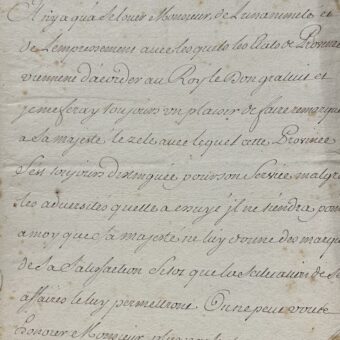 Il n'y a qu'a se louer Monsieur, de l'unanimité et
de l'empressement avec lesquels les Etats de Provence
viennent d'acorder au Roy le Don gratuit et
je me feray toujours un plaisir de faire remarquer
a Sa majesté le zele avec lequel cette Province
s'est toujours distinguée pour son service malgré
les adversités qu'elle a essuyé il ne tiendra pas
a moy que Sa majesté ne luy donne des marques
de sa satisfaction si tot que la situation de Ses
affaires le luy permettront On ne peut vous
honorer Monsieur plus